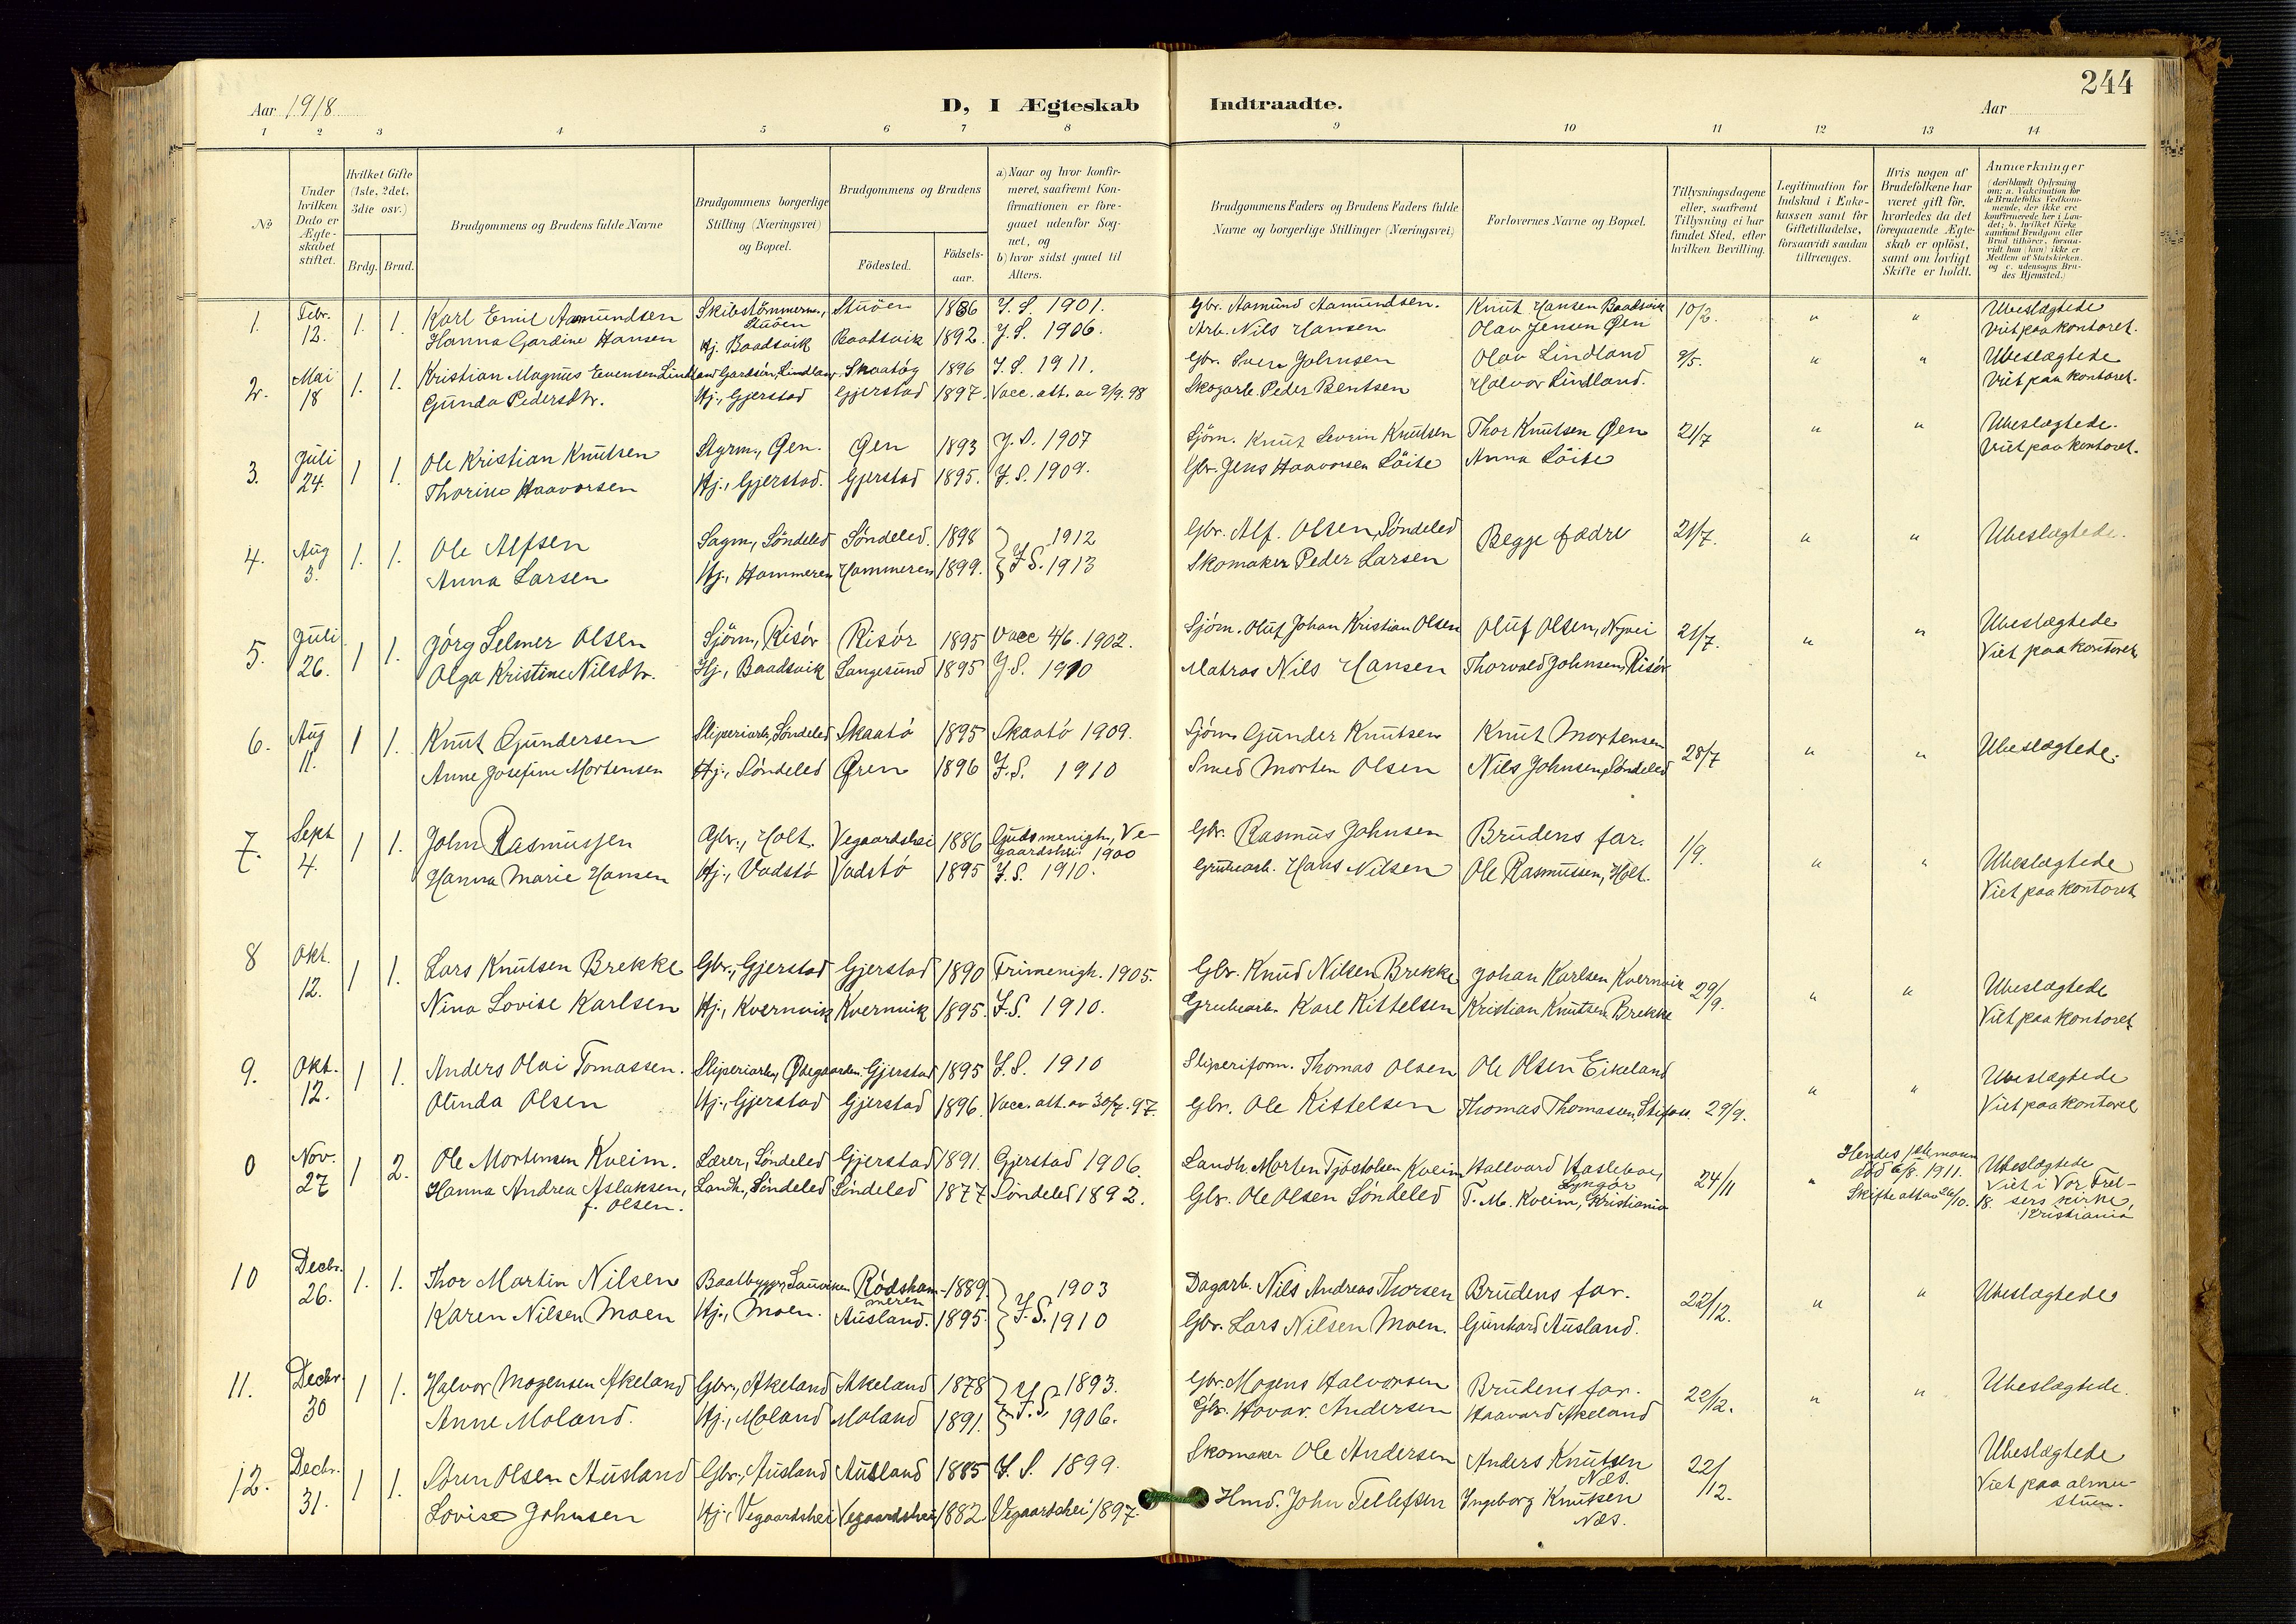 244
Aar 1918
D, I Ægteskab Indtraadte.
Aar
1 2 3 4 5 6 7 8 9 10 11 12 13 14
No
Under hvilken Dato er Ægteskabet stiftet.
Hvilket Gifte (1ste, 2det, 3die osv.)
Brdg. Brud.
Brudgommens og Brudens fulde Navne
Brudgommens borgerlige Stilling (Næringsvei) og Bopæl.
Brudgommens og Brudens
Fødested.
Fødselsaar.
a) Naar og hvor konfirmeret, saafremt Konfirmationen er foregaaet udenfor Sognet, og
b) hvor sidst gaaet til Alters.
Brudgommens Faders og Brudens Faders fulde Navne og borgerlige Stillinger (Næringsvei)
Forlovernes Navne og Bopæl.
Tillysningsdagene eller, saafremt Tillysning ei har fundet Sted, efter hvilken Bevilling.
Legitimation for Indskud i Enkekassen samt for Giftetilladelse, forsaavidt saadan tiltrænges.
Hvis nogen af Brudefolkene har været gift før, hvorledes da det foregaaende Ægteskab er opløst, samt om lovligt Skifte er holdt.
Anmærkninger (deriblandt Oplysning om: a. Vakcination for de Brudefolks Vedkommende, der ikke ere konfirmerede her i Landet; b. hvilket Kirkesamfund Brudgom eller Brud tilhører, forsaavidt han (hun) ikke er Medlem af Statskirken. og c. udensogns Brudes Hjemsted.)
1. Febr. 12. 1. 1. Karl Emil Aamundsen Skibstømmerm., Stuöen Stuöen 1886 I. S. 1901. Gbr. Aamund Aamundsen. Knut Hansen Baadsvik 10/2. " " Ubeslægtede
Hanna Gardine Hansen Hj. Baadsvik Baadsvik 1892. I. S. 1906. Arb. Nils Hansen Olav Jensen Øen Viet paa kontoret.
2. Mai 18 1. 1. Kristian Magnus Evensen Lindland Gardsön, Lindland. Skaatøy 1896 I. S. 1911. Gbr. Even Johnsen Olav Lindland 9/5. " " Ubeslægtede
Gunda Pedersdtr. Hj., Gjerstad Gjerstad 1897. Vacc. att. av 2/9. 98 Skogarb. Peder Bentsen Halvor Lindland. Viet paa kontoret.
3. Juli 24. 1 1. Ole Kristian Knutsen Styrm., Øen. Øen 1893 I. S. 1907 Sjøm. Knut Severin Knutsen Thor Knutsen Øen 21/7 " " Ubeslægtede.
Thorine Haavorsen Hj., Gjerstad. Gjerstad 1895. I. S. 1909. Gbr. Jens Haavorsen Löite Anna Löite Viet paa kontoret.
4. Aug 3. 1. 1. Ole Alfsen Sagm., Söndeled Söndeled. 1898 I. S. 1912 Gbr. Alf. Olsen, Søndeled Begge fædre 21/7. " " Ubeslægtede.
Anna Larsen Hj., Hammeren Hammeren 1899. 1913 Skomaker Peder Larsen
5. Juli 26. 1 1. Jörg Selmer Olsen Sjöm., Risör Risör 1895 Vacc 4/6. 1902. Sjöm. Oluf Johan Kristian Olsen Oluf Olsen, Nyvei 21/7. " " Ubeslægtede
Olga Kristine Nilsdtr. Hj., Baadsvik Langesund 1895 I. S. 1910 Matros Nils Hansen Thorvald Johnsen, Risör Viet paa kontoret
6. Aug 11. 1 1. Knut Gundersen Sliperiarb., Söndeled Skaatö 1895 Skaatö 1909. Sjöm. Gunder Knutsen Knut Mortensen 28/7 " " Ubeslægtede.
Anne Josefine Mortensen Hj., Söndeled Øren 1896 I. S. 1910 Smed Morten Olsen Nils Johnsen, Söndeled
7. Sept 4. 1 1. John Rasmussen Gbr., Holt. Vegaardshei 1886 Gudsmenigh., Vegaardshei 1900 Gbr. Rasmus Johnsen Brudens far. 1/9. " " Ubeslægtede
Hanna Marie Hansen Hj., Vadstö Vadstö 1895 I. S. 1910. Grubearb. Hans Nilsen Ole Rasmussen, Holt. Viet paa kontoret
8 Okt. 12. 1 1. Lars Knutsen Brekke Gbr., Gjerstad Gjerstad 1890 Frimenigh. 1905. Gbr. Knud Nilsen Brekke Johan Karlsen Kvernvik 29/9. " " Ubeslægtede
Nina Lovise Karlsen Hj., Kvernvik Kvernvik 1895. I. S. 1910. Grubearb. Karl Kittelsen Kristian Knutsen Brekke Viet paa kontoret
9. Okt. 12. 1 1. Anders Olai Tomassen. Sliperiarb., Ødegaarden. Gjerstad 1895 I. S. 1910 Sliperiform. Thomas Olsen Ole Olsen Eikeland " " Ubeslægtede
Olinda Olsen Hj., Gjerstad Gjerstad 1896. Vacc. att. av 30/7. 97. Gbr. Ole Kittelsen Thomas Thomassen, Stifoss. 29/9. Viet paa kontoret
0 Nov. 27 1 2. Ole Mortensen Kveim. Lærer, Söndeled Gjerstad 1891. Gjerstad 1906. Landh. Morten Tjöstolsen Kveim Hallvard Haslebo, Lyngör 24/11 " Hendes 1ste mann död 6/8. 1911. Skifte att av 26/10. 18. Ubeslægtede
Hanna Andrea Aslaksen, f. Olsen. Landh., Söndeled Söndeled 1877. Söndeled 1892. Gbr. Ole Olsen Söndeled T. M. Kveim, Kristiania Viet i Vor Frelsers kirke, Kristiania
10 Decbr. 26. 1. 1. Thor Martin Nilsen Baatbygger, Sauviken Rödshammeren 1889. I. S. 1903 Dagarb. Nils Andreas Thorsen Brudens far. 22/12. " " Ubeslægtede
Karen Nilsen Moen Hj., Moen. Ausland. 1895. 1910 Gbr. Lars Nilsen Moen. Gunhard Ausland.
11. Decbr. 30 1 1. Halvor Mogensen Akeland Gbr., Akeland Akeland 1878 I. S. 1893. Gbr. Mogens Halvorsen Brudens far. 22/12. " " Ubeslægtede.
Anne Moland. Hj., Moland Moland 1891. 1906. Gbr. Havar. Andersen Haavard Akeland
12. Decbr. 31. 1 1. Sören Olsen Ausland Gbr., Ausland Ausland 1885 I. S. 1899. Skomaker Ole Andersen Anders Knutsen Næs. 22/12. Ubeslægtede
Lovise Johnsen Hj., Vegaardshei Vegaardshei 1882. Vegaardshei 1897. Hmd. John Tellefsen Ingeborg Knutsen Næs. Viet paa almustuen.